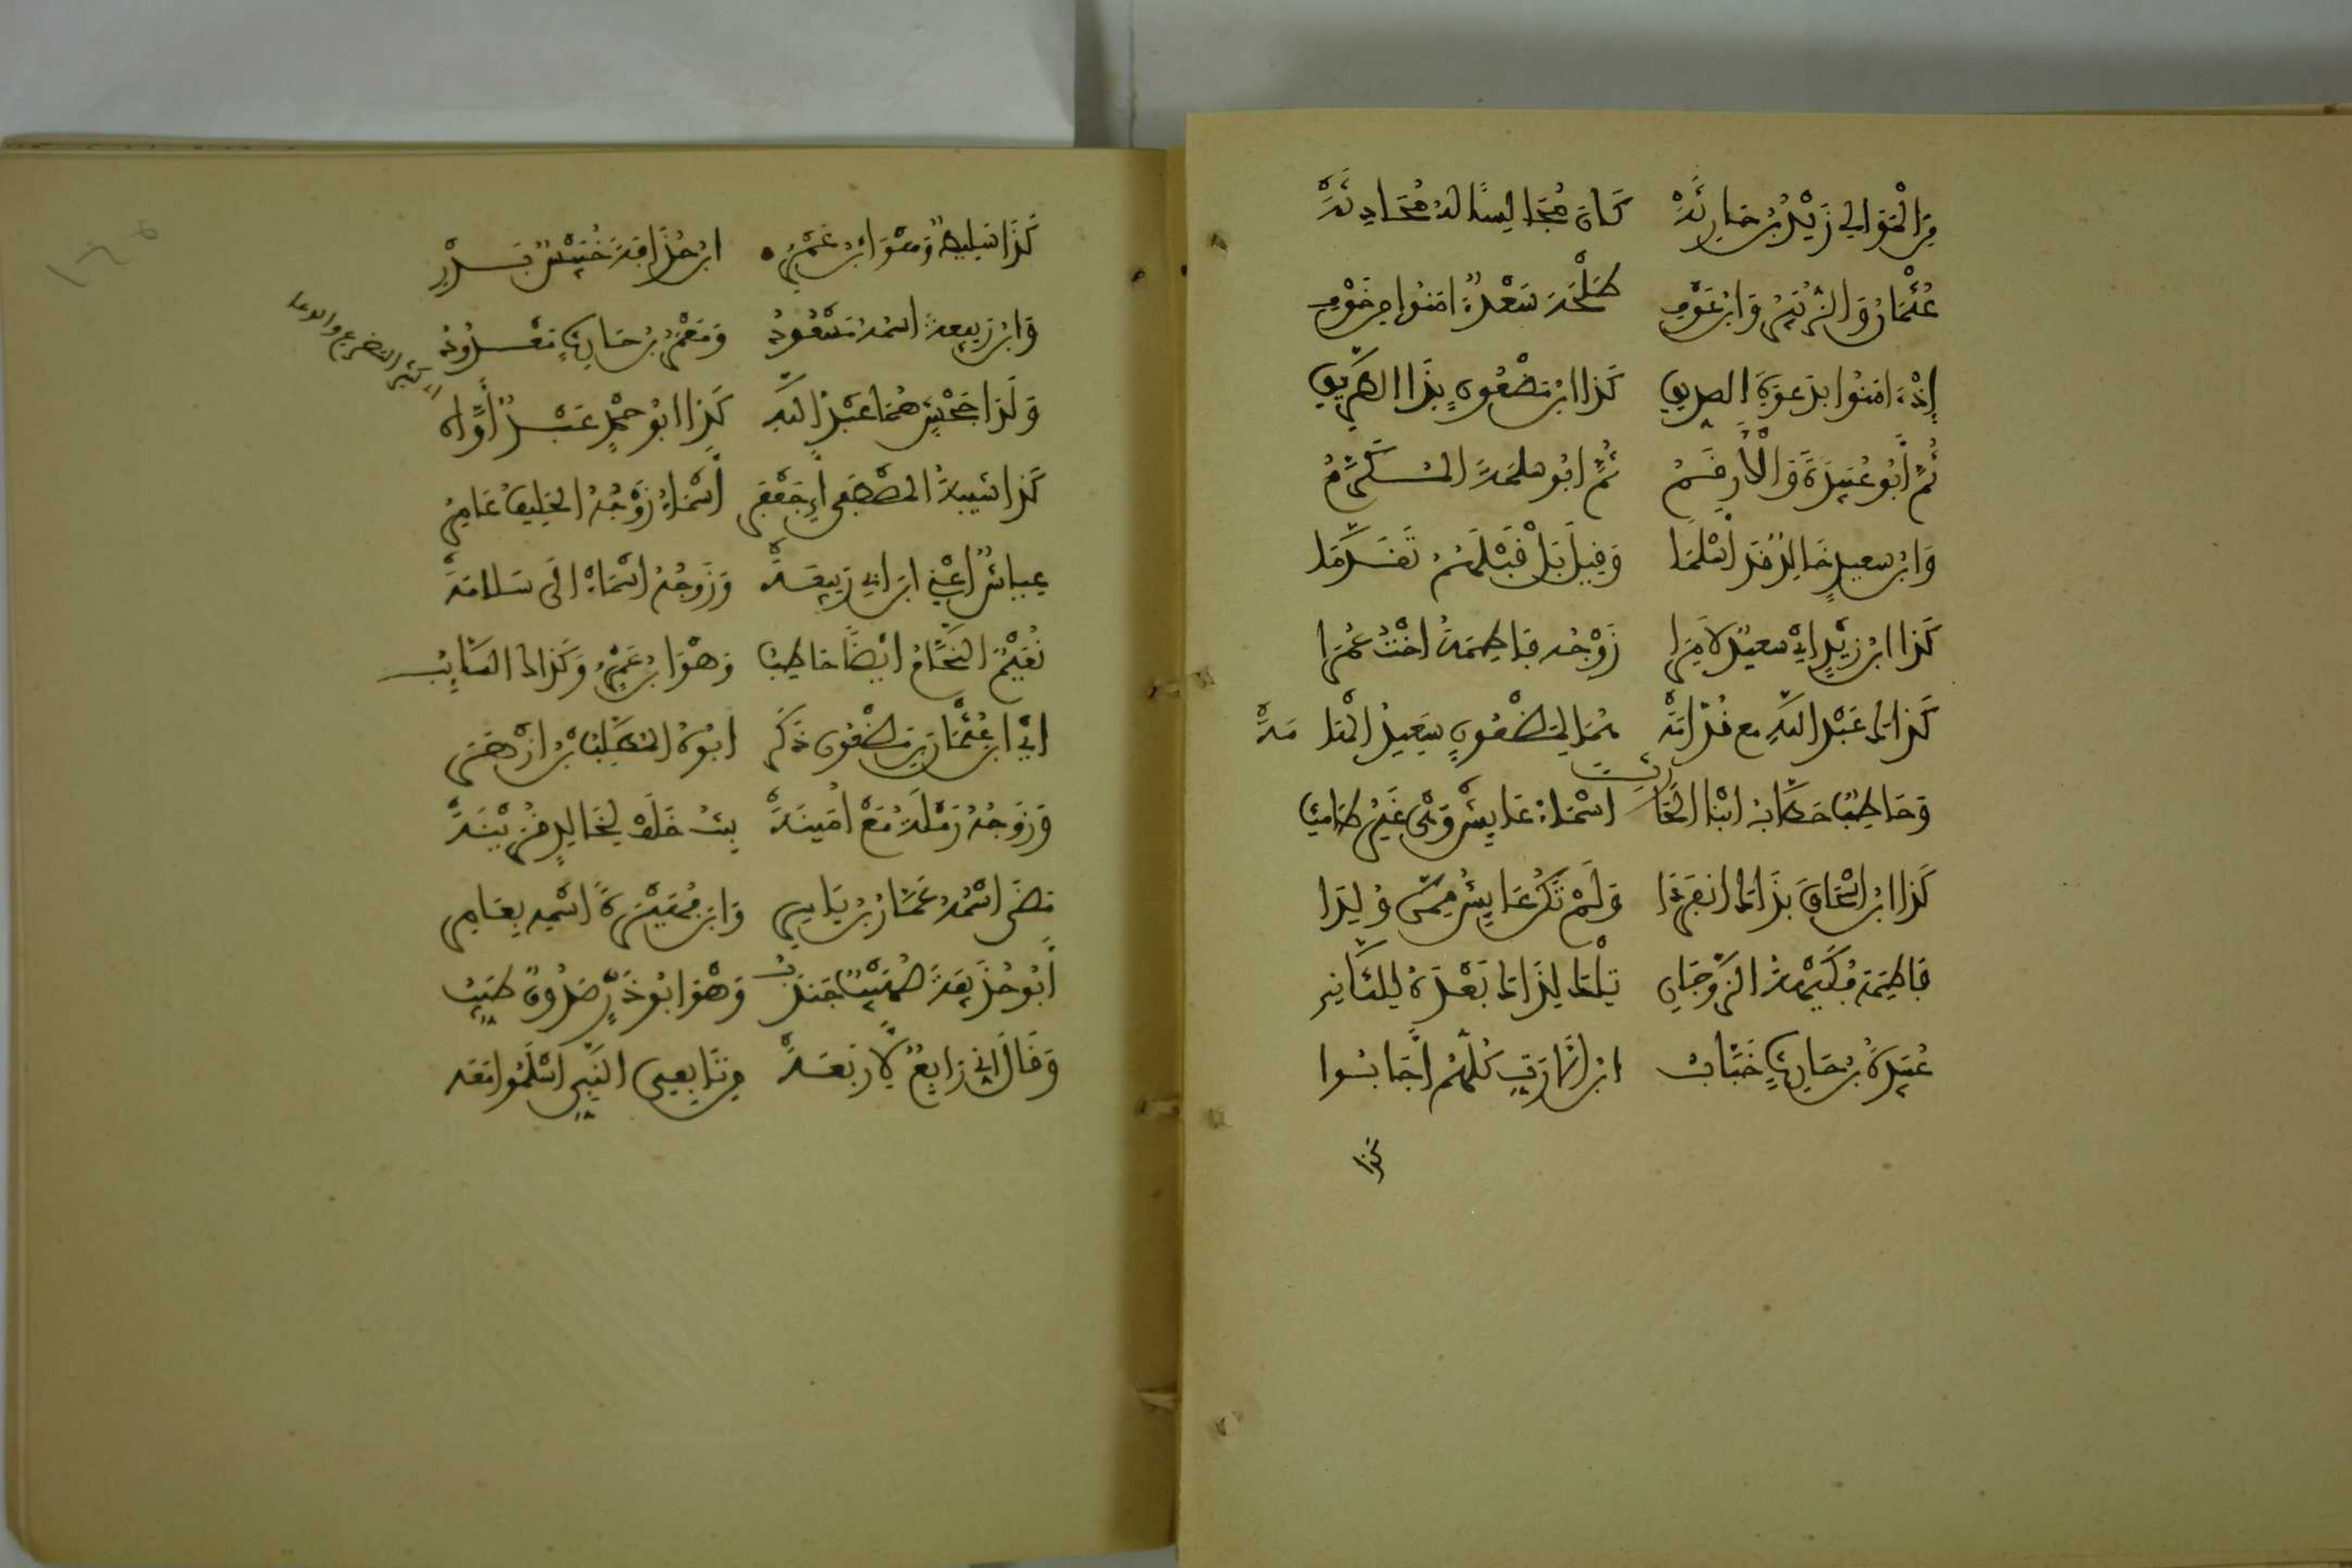 مِنَ الْمَوَالِي زَيْدُ بْنُ حَارِثَةْ كَانَ مُجَالِسًا لَهُ مُحَادِثَةْ
عُثْمَانُ وَالزُّبَيْرُ وَابْنُ عَوْفِ طَلْحَةُ سَعْدٌ امَنُوا مِن خَوْفِ
إِذْ امَنُوا بِدَعْوَةِ الصديقِ كَذَا ابْنُ مَظْعُونٍ بِذَا الطَّرِيقِ
ثُمَّ أَبُو عُبَيْدَةَ وَالْأَرْقَمُ ثُمَّ ابُو سلمَةَ الْمُكَرَّمُ
وَابْنُ سعيدٍ خَالِدٌ قَد أَسْلَمَا وَقِيلَ بَلْ قَبْلَهُمُ تَقَدَّمَا
كَذَا ابْنُ زَيْدٍ ايْ سعيدٌ لَا مِرَا زَوْجُه فَاطِمَةُ اخْتُ عُمَرَا
كَذَاكَ عَبْدُ اللَّهِ مع قُدَامَةْ هُمَا لِمَظْعُونٍ سَعِيدُ الْهَامَةْ
وَحَاطِبٌ حَطَّابُ ابْنَا الْحَارِثِ اسْمَاءُ عَايِشٌ وَهْيَ غَيْرُ طَامِثِ
كَذَا ابْنُ اسْحَاقَ بِذَاكَ انْفَرَدَا وَلَمْ تَكُنْ عَايِشُ مِمَّنْ وُلِدَا
فَاطِمَةُ فُكَيْهَةُ الزَّوْجَانِ تِلْكَ لِذَاكَ بَعْدَهُ لِلثَّانِي
عُبَيْدَةُ بْنُ حَارِثٍ خَبَّابُ ابْنُ الْأَرَتِّ كُلُّهُمْ أَجَابُوا
كَذَا
كَذَا سَلِيطٌ وَهْوَ ابْنُ عَمْرِ ابْنُ حُذَافَةَ خُنَيْسٌ بَدْرِي
وَابْنُ رَبِيعة اسْمُه مَسْعُودُ وَمَعْمَرُ بْنُ حَارِثٍ مَعْدُودُ
وَلَدَا جَحْشٍ هُمَا عَبْدُ اللَّهِ كَذَا ابُو حْمَد عَبْدٌ أَوَّاهْ
اي كثير التضرع والدعا
كَذَا شَبِيهُ الْمُصْطَفَى أَي جَعْفَرُ أَسْمَاءُ زَوْجُهُ الحَلِيفُ عَامِرُ
عيَّاشٌ أَعْنِي ابْنَ ابِي رَبِيعَةْ وَزَوْجُهُ اسْمَاءُ الَى سَلَامَةْ
نُعَيْمٌ النَّحَّامُ ايْضًا حَاطِبُ وَهْوَ ابْنُ عَمْرٍو وَكَذَاكَ السَّايِبُ
ايْ ابْنُ عُثْمَانَ بْنِ مَظْعُونٍ ذَكَرْ ابُوهُ الْمُطَّلِبُ بْنُ ازْهَرْ
وَزَوْجُهُ رَمْلَةُ مَعْ أُمَيْنَةْ بِنْتُ خَلَفْ لِخَالِدٍ قَرِينَةْ
مَضَى اسْمُهُ عَمَّارُ بْنُ يَاسِرِ وَابْنُ فُهَيْرَةَ اسْمه بِعَامِرِ
أَبُو حُذَيْفَةَ صُهَيْبٌ جُنْدُبُ وَهْوَ ابُو ذَرٍّ صَدُوقٌ طَيِّبُ
وَقَالَ انِّي رَابِعٌ لِأَرْبَعَةْ مِن تَابِعِي النَّبِي اسْلَمُوا مَعَه